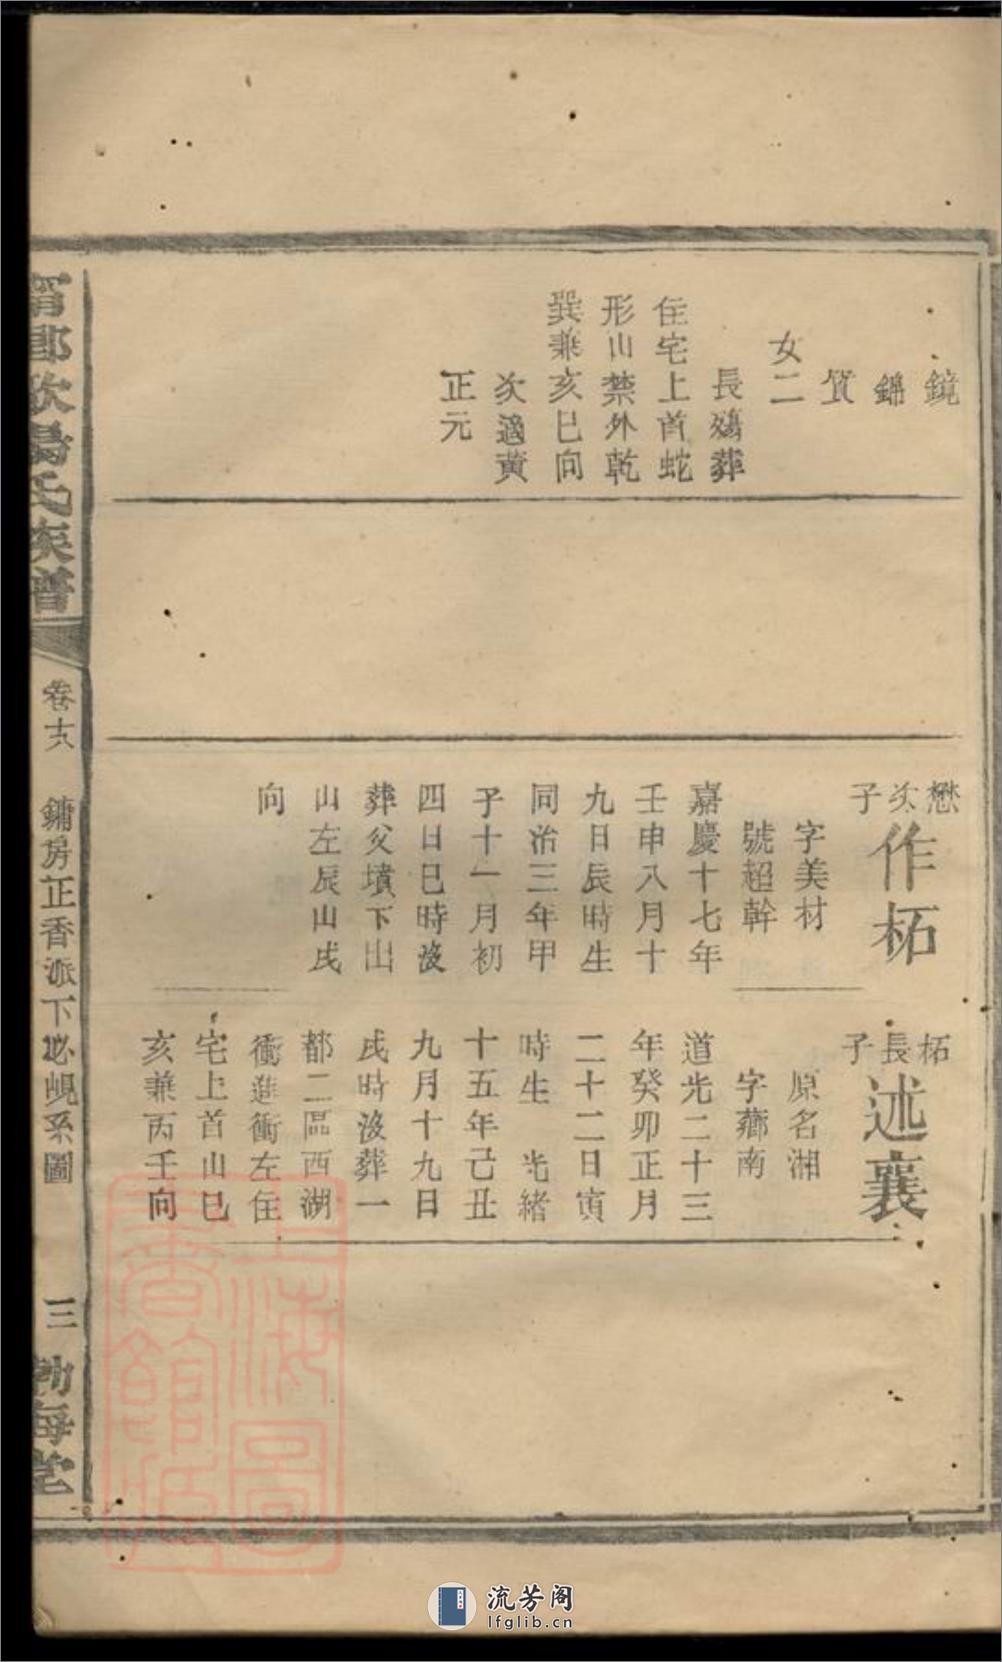 鏡
錦
質
女二
長殤葬
住宅上首蛇
形山禁外乾
巽兼亥巳向
次適黃
正元
懋次子
作柘
字美材
號超幹
嘉慶十七年
壬申八月十
九日辰時生
同治三年甲
子十一月初
四日巳時沒
葬父墳下山
山左辰山戌
向
柘長子
述襄
原名湘
字薌南
道光二十三
年癸卯正月
二十二日寅
時生 光緒
十五年己丑
九月十九日
戌時沒葬一
都二區西湖
衝進衝左住
宅上首山巳
亥兼丙壬向
氏族譜
卷十六
鏞房正香派下必峴系圖
三
勃海堂
上海圖書館藏
流芳阁
lfglib.cn